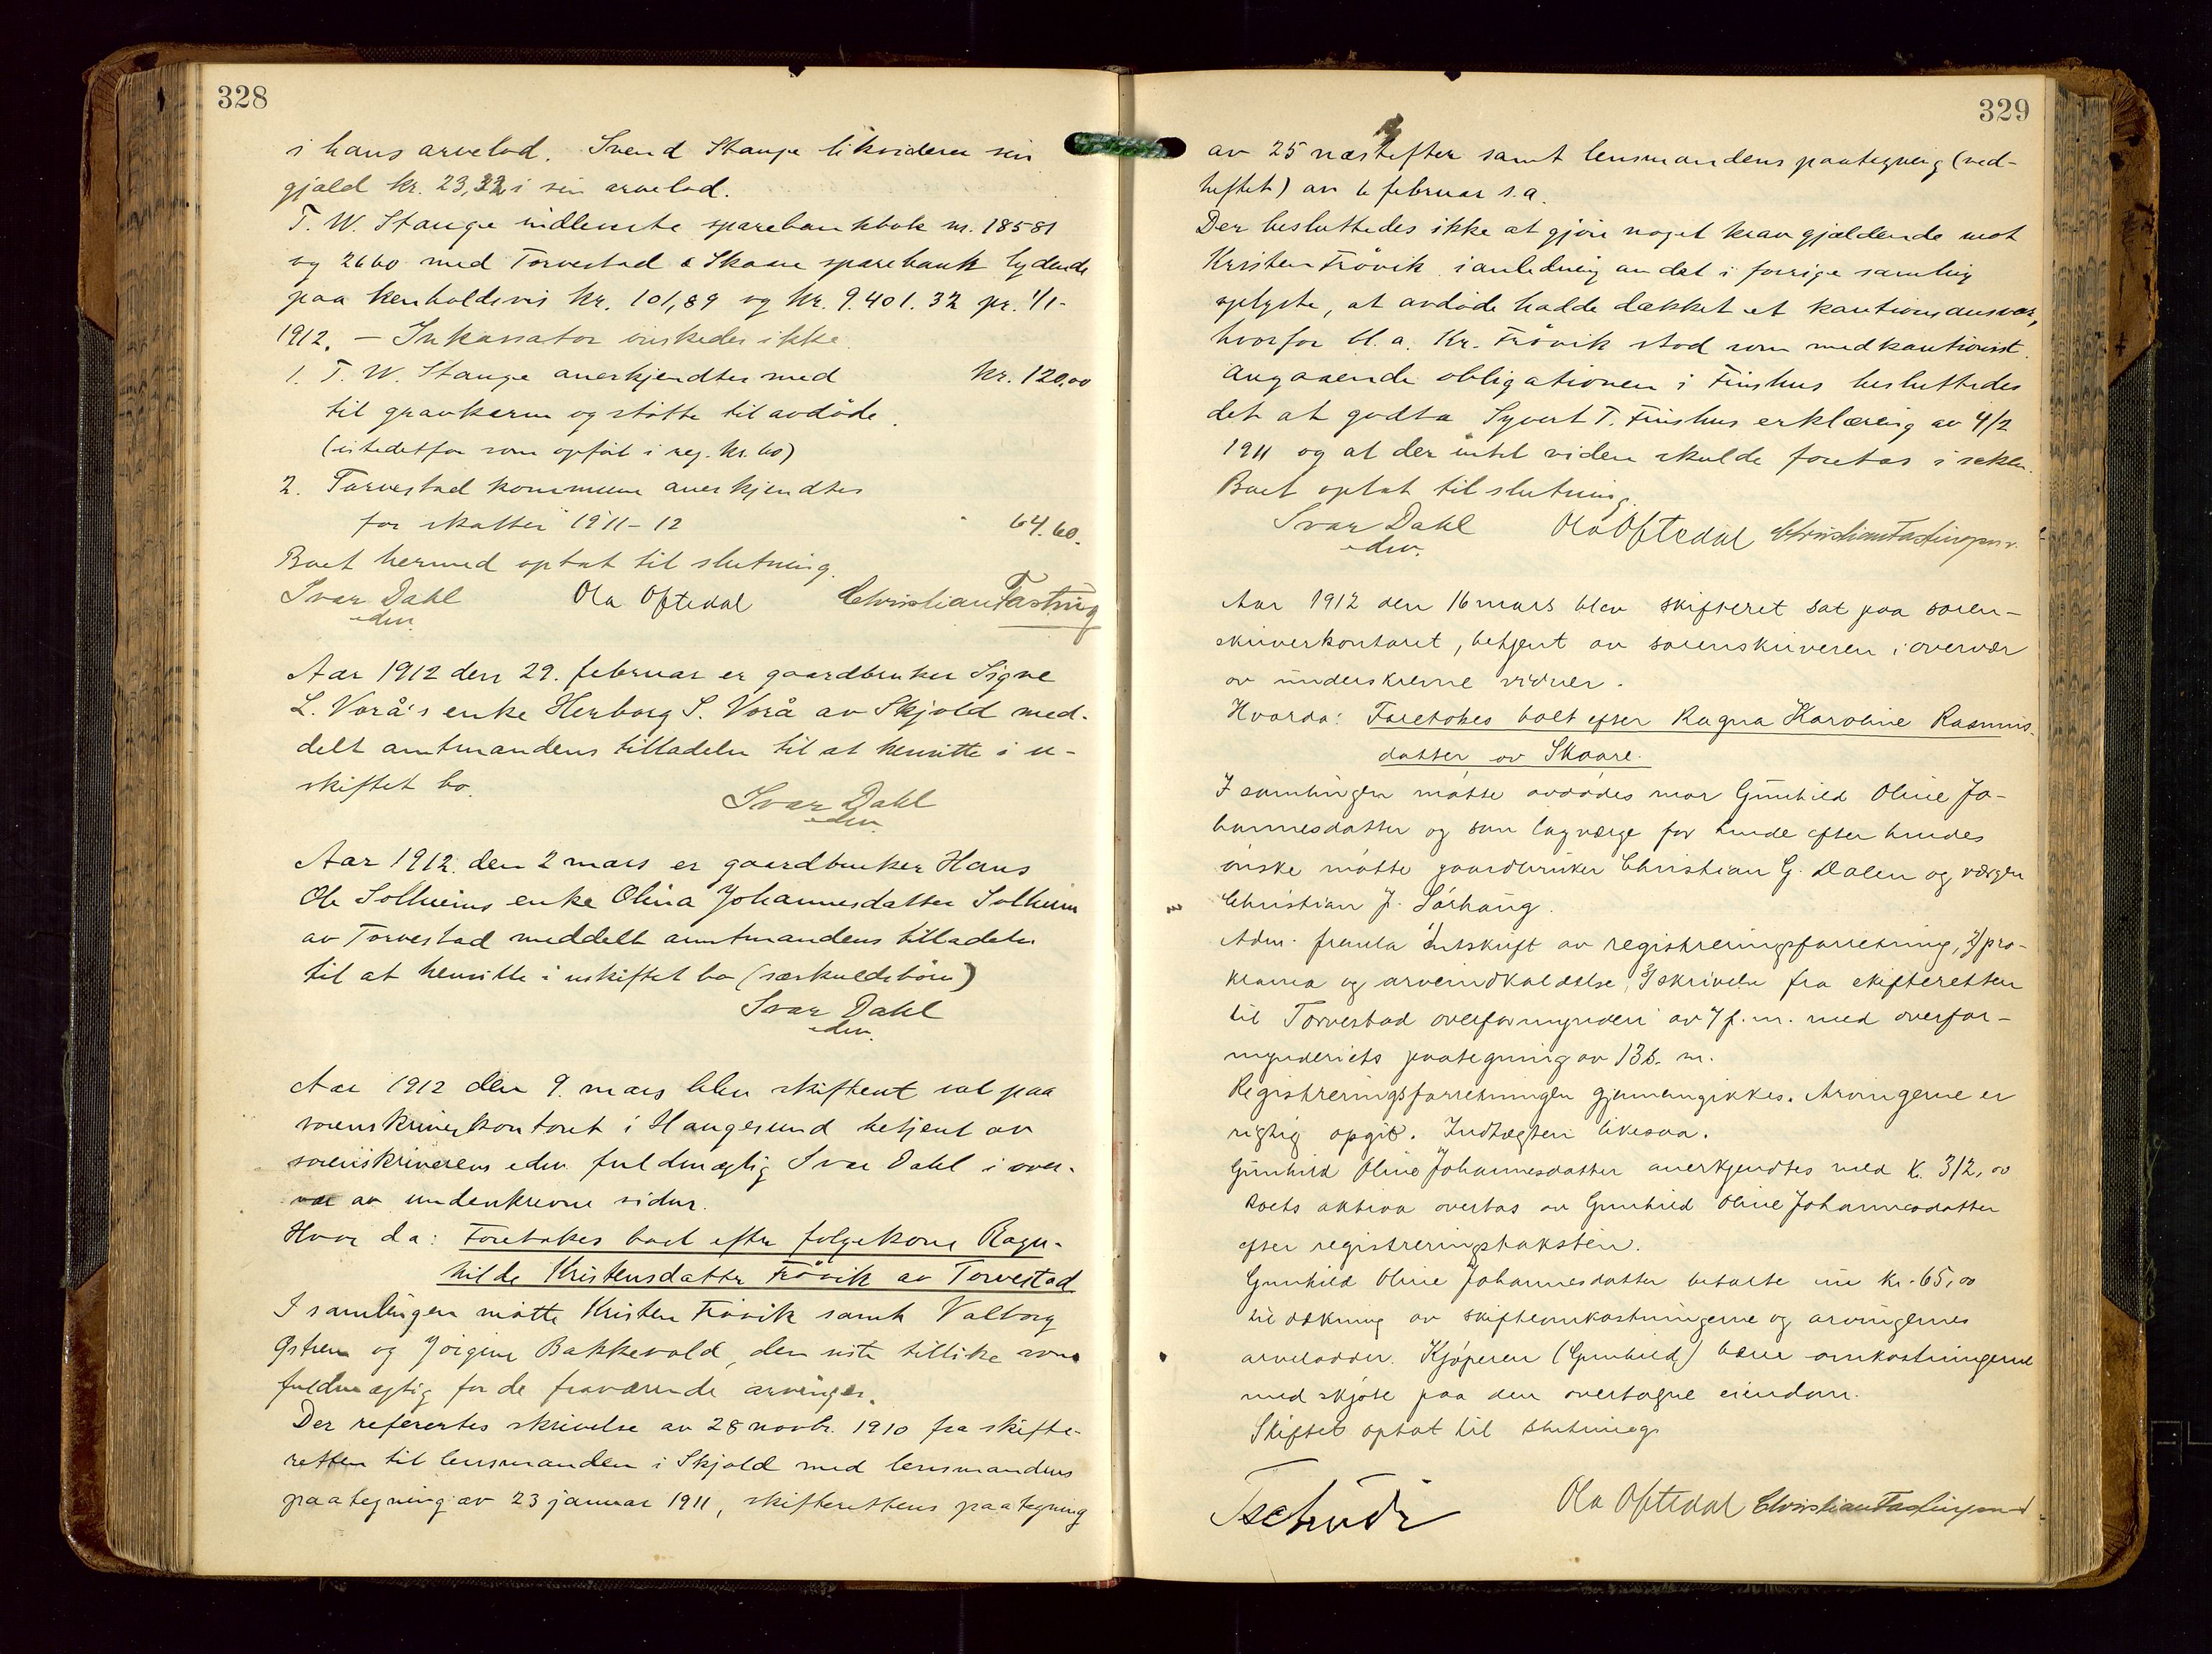 328
i hans arvelod. Svend Stange likviderer sin
gjæld kr. 23,32 i sin arvelod.
T. W. Stange indleverte sparebankbok nr. 18581
og 2660 med Torvestad & Skaare sparebank lydende
paa henholdsvis kr. 101,89 og kr. 9.401.32 pr. 1/1-
1912. — Inkassator ønskedes ikke.
1. T. W. Stange anerkjendtes med kr. 120.00
til gravkarm og støtte til avdøde.
(istedetfor som opført i reg. kr. 60)
2. Torvestad kommune anerkjendtes
for skatter 1911-12 " 64.60.
Boet hermed optat til slutning.
Ivar Dahl Ola Oftedal Christian Fasting
edsv.
Aar 1912 den 29. februar er gaardbruker Signe
L. Vorå's enke Herborg S. Vorå av Skjold med-
delt amtmandens tilladelse til at hensitte i u-
skiftet bo.
Ivar Dahl
edsv.
Aar 1912 den 2 mars er gaardbruker Hans
O. Solheims enke Olina Johannesdatter Solheim
av Torvestad meddelt amtmandens tilladelse
til at hensitte i uskiftet bo (særkuldsbørn)
Ivar Dahl
edsv.
Aar 1912 den 9. mars blev skifteret sat paa
sorenskriverkontoret i Haugesund betjent av
sorenskriverens edsv. fuldmægtig Ivar Dahl i over-
vær av underskrevne vidner.
Hvor da: Foretokes boet efter følgekone Ragn-
hilde Kristensdatter Frøvik av Torvestad
I samlingen møtte Kristen Frøvik samt Valborg
Østrem og Jørgine Bakkevold, den siste tillike som
fuldmægtig for de fraværende arvinger.
Der referertes skrivelse av 28 novbr. 1910 fra skifte-
retten til lensmanden i Skjold med lensmandens
paategning av 23 januar 1911, skifterettens paategning
329
av 25 næstefter samt lensmandens paategning (ved-
heftet) av 6 februar s.a.
Der besluttedes ikke at gjøre noget krav gjældende mot
Kristen Frøvik i anledning av det i forrige samling
oplyste, at avdøde hadde dækket et kautionsansvar,
hvorfor bl. a. Kr. Frøvik stod som medkautionist.
Angaaende obligationen i Finshus besluttedes
det at godta Syvert T. Finshus erklæring av 4/2
1911 og at der intet videre skulde foretas i saken.
Boet optat til slutning.
Ivar Dahl Ola Oftedal Christian Fasting
edsv.
Aar 1912 den 16 mars blev skifteret sat paa soren-
skriverkontoret, betjent av sorenskriveren i overvær
av underskrevne vidner.
Hvorda: Foretokes boet efter Ragna Karoline Rasmus-
datter av Skaare.
I samlingen møtte avdødes mor Gunhild Oline Jo-
hannesdatter og som lagværge for hende efter hendes
ønske møtte gaardbruker Christian G. Dalen og værgen
Christian J. Sørhaug.
Adm. fremla 1) utskrift av registreringsforretning, 2) pro-
klama og arveindkaldelse, 3) skrivelse fra skifteretten
til Torvestad overformynderi av 7 f. m. med overfor-
mynderiets paategning av 13 s. m.
Registreringsforretningen gjennemgikkes. Arvingerne er
rigtig opgit. Indtægten likesaa.
Gunhild Oline Johannesdatter anerkjendtes med K. 312,00
Boets aktiva overtas av Gunhild Oline Johannesdatter
efter registreringstaksten.
Gunhild Oline Johannesdatter betalte inn kr. 65,00
til dækning av skifteomkostningerne og arvingernes
arvelodder. Kjøperen (Gunhild) bærer omkostningerne
med skjøte paa den overtagne eiendom.
Skiftet optat til slutning.
Tschudi Ola Oftedal Christian Fasting